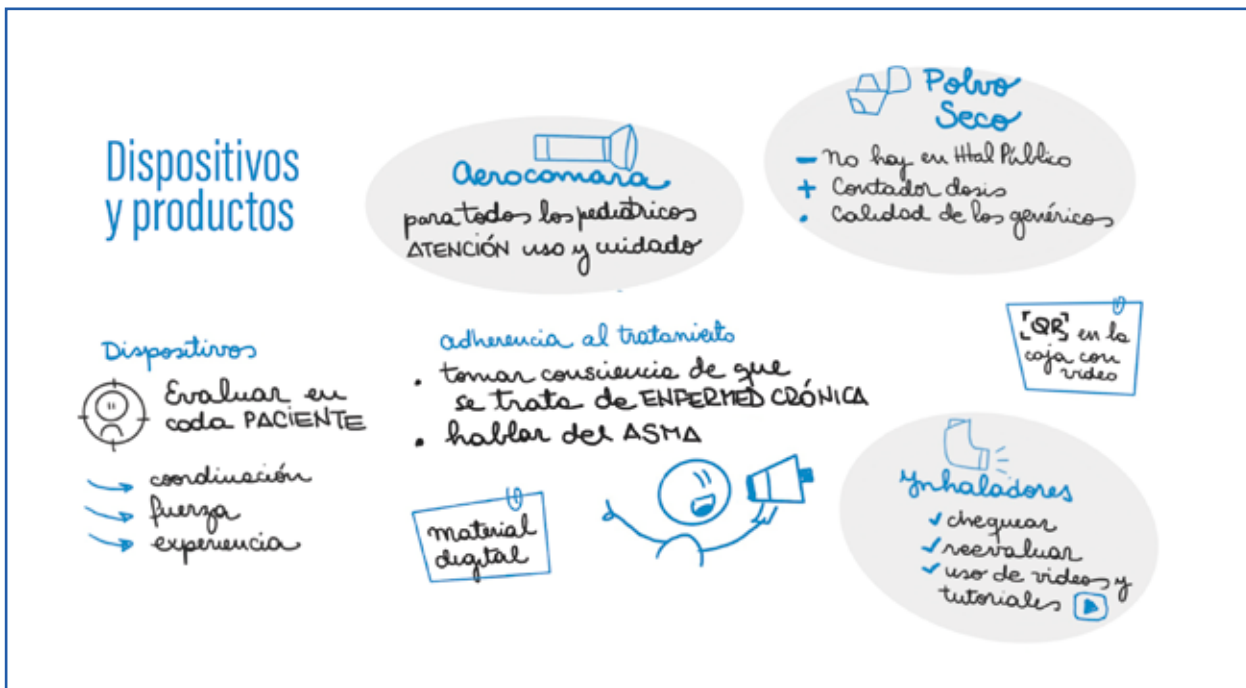 Dispositivos
y productos
Aerocamara
para todos los pediátricos
ATENCIÓN uso y cuidado
Polvo
Seco
- no hay en Htal Público
+ Contador dosis
• Calidad de los genéricos
Dispositivos
Evaluar en
cada PACIENTE
→ coordinación
→ fuerza
→ experiencia
adherencia al tratamiento
• tomar consciencia de que
se trata de ENFERMED CRÓNICA
• hablar del ASMA
material
digital
QR en la
caja con
video
Ynhaladores
✓ chequear
✓ reevaluar
✓ uso de videos y
tutoriales